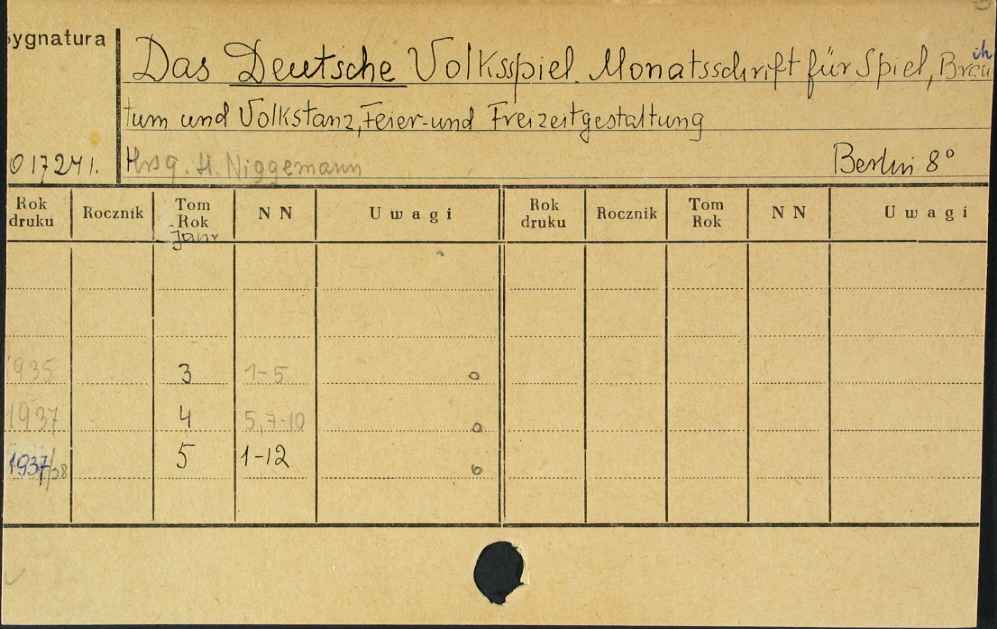 Sygnatura
Das Deutsche Volksspiel. Monatsschrift für Spiel, Brauch
tum und Volkstanz, Feier- und Freizeitgestaltung
017241. Hrsg. H. Niggemann Berlin 8°
Rok druku Rocznik Tom Rok NN Uwagi Rok druku Rocznik Tom Rok NN Uwagi
Jahr
1935 3 1-5 0
1937 4 5,7-10 0
1937/38 5 1-12 0